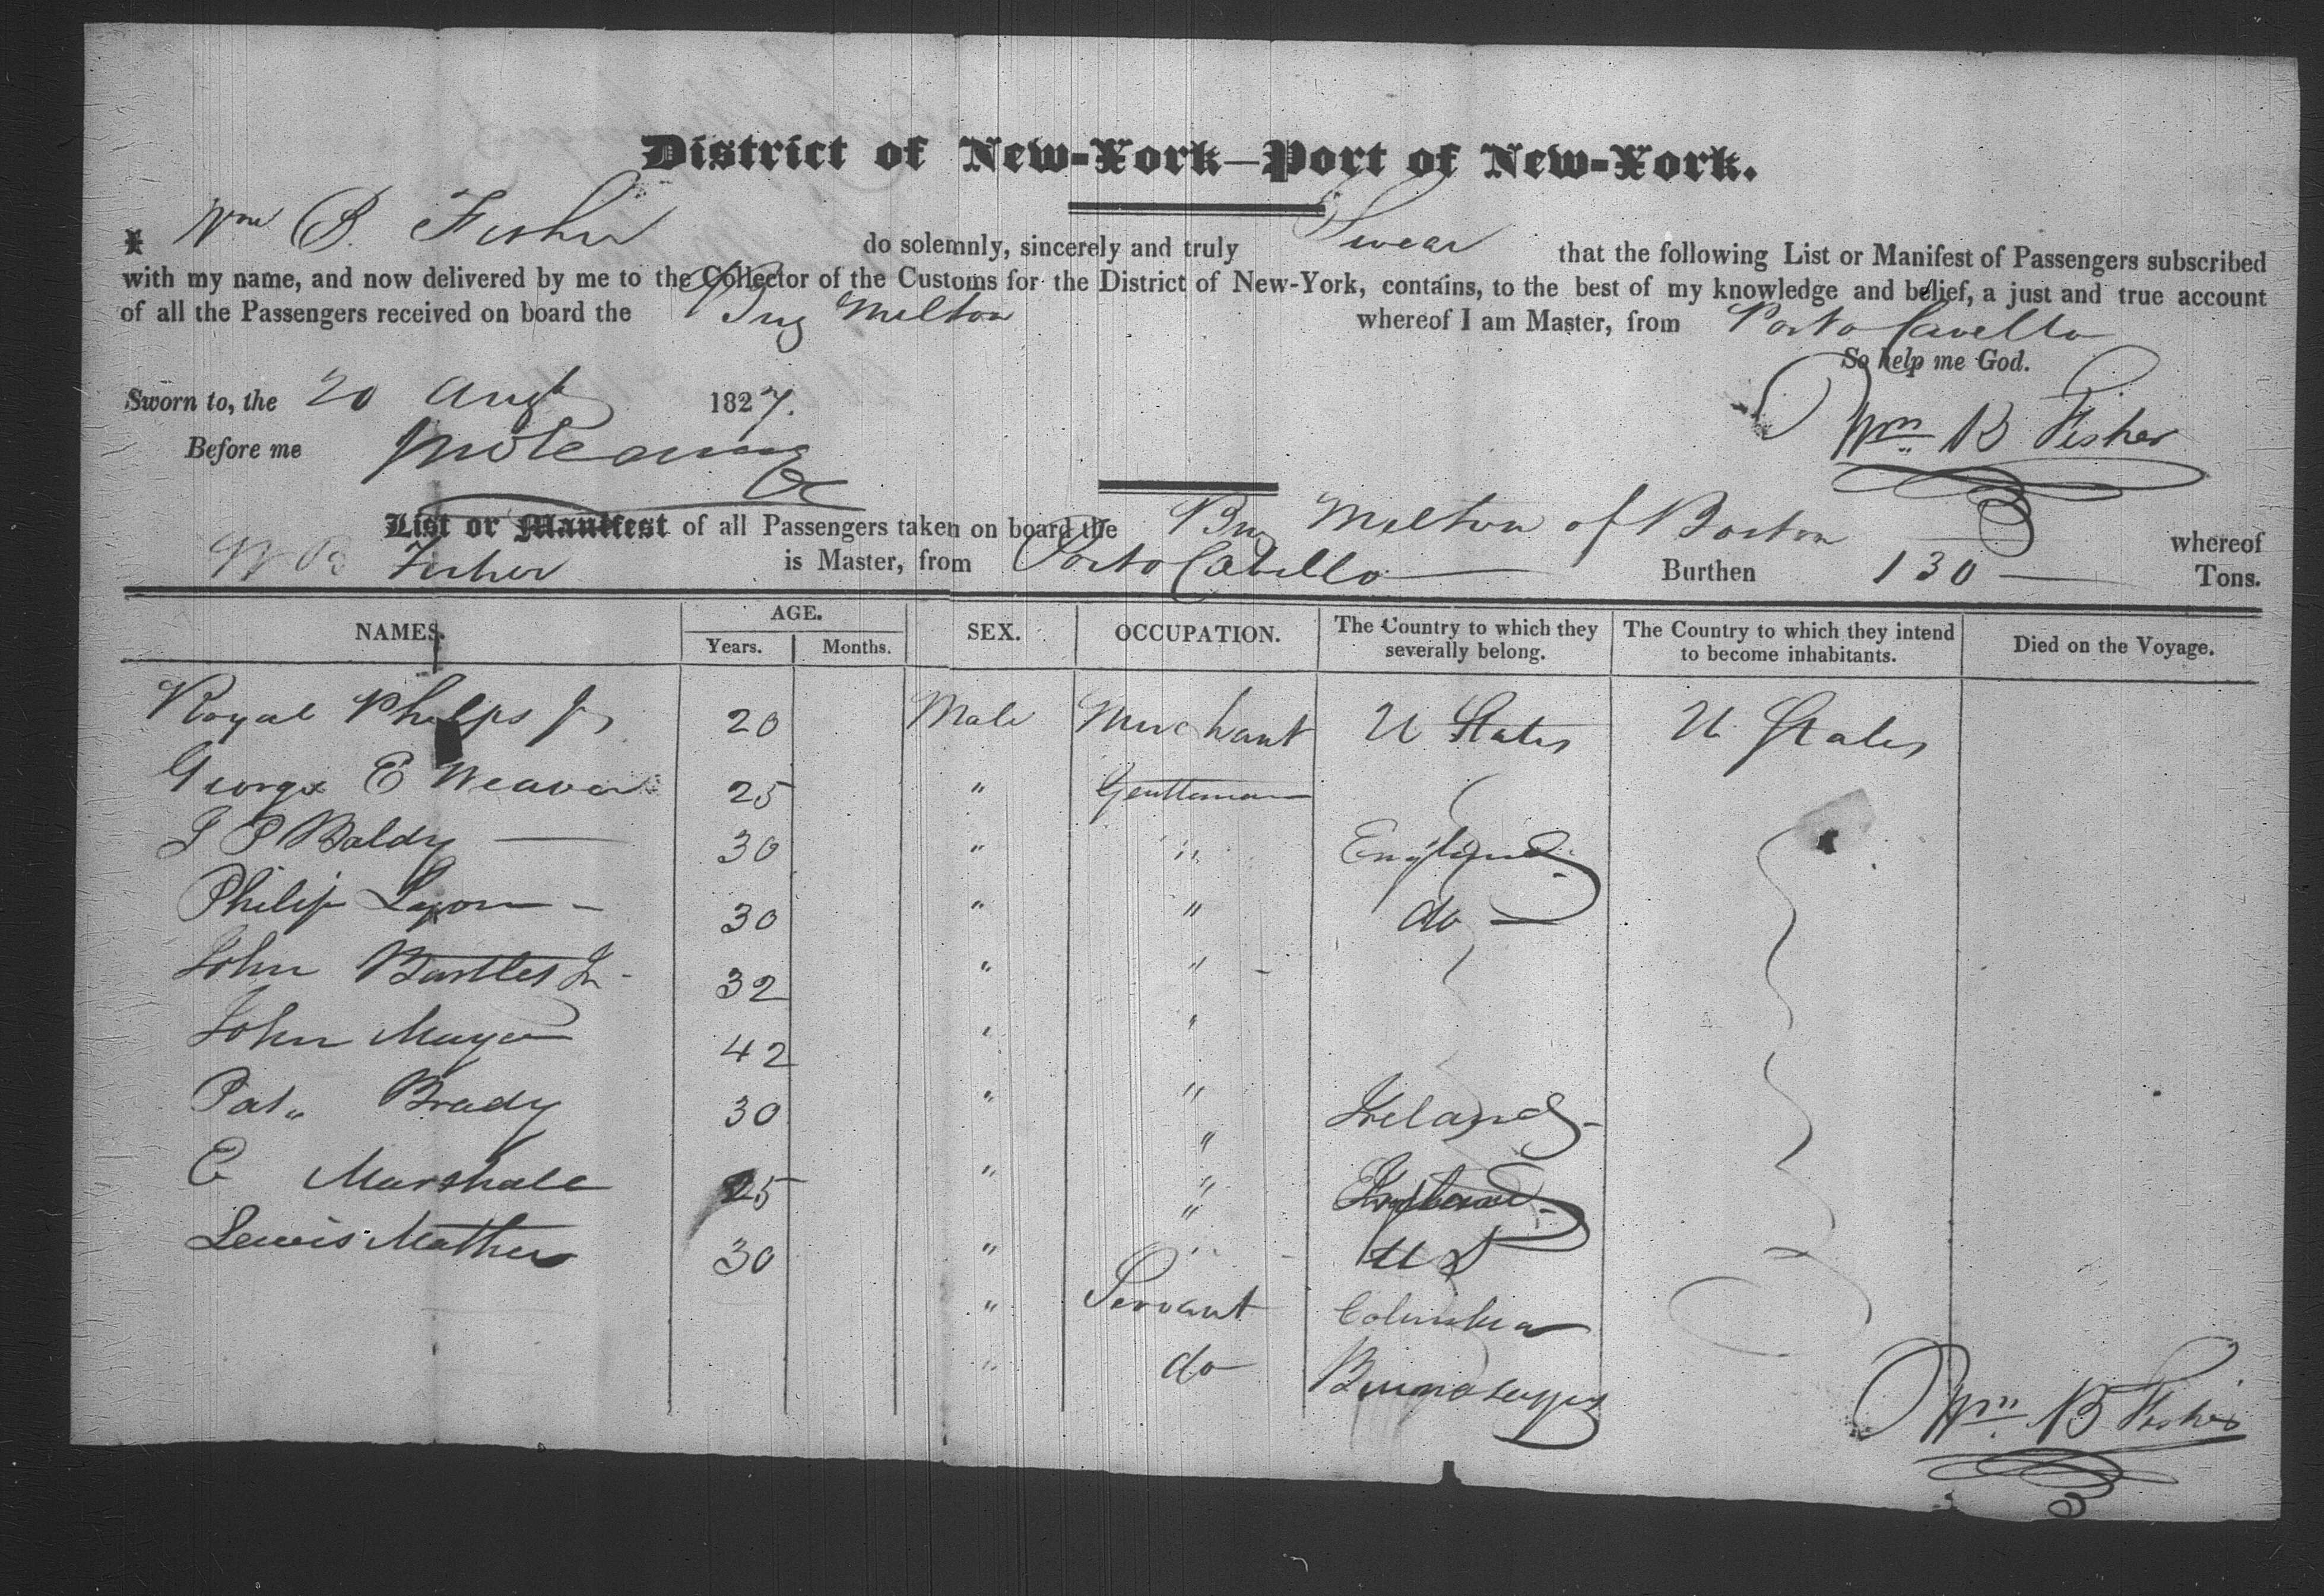 District of New-York—Port of New-York.
I Wm B. Fisher do solemnly, sincerely and truly Swear that the following List or Manifest of Passengers subscribed
with my name, and now delivered by me to the Collector of the Customs for the District of New-York, contains, to the best of my knowledge and belief, a just and true account
of all the Passengers received on board the Brig Milton whereof I am Master, from Porto Cavello
So help me God.
Sworn to, the 20 Augt 1827.
Wm B Fisher
Before me
List or Manifest of all Passengers taken on board the Brig Milton of Boston whereof
W B Fisher is Master, from Porto Cabello Burthen 130 Tons.
NAMES. AGE. Years. Months. SEX. OCCUPATION. The Country to which they severally belong. The Country to which they intend to become inhabitants. Died on the Voyage.
Royal Phelps Jr 20 Male Merchant U States U. States
George E Weaver 25 " Gentleman
J P Baldy 30 " " England
Philip Lyon 30 " " do
John Bartles Jr 32 " "
John Mayer 42 " "
Pat,, Brady 30 " " Ireland
E Marshall 25 " "
Lewis Mather 30 " " U S
" Servant Columbia
" do
Wm B Fisher